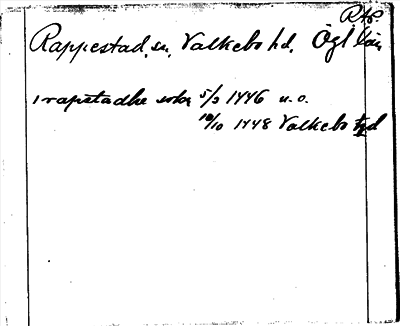 RAP
Rappestad, sn, Valkebo hd, Ögl län
i rapstadhe sokn 5/3 1446 u.o.
10/10 1448 Valkebo tgd